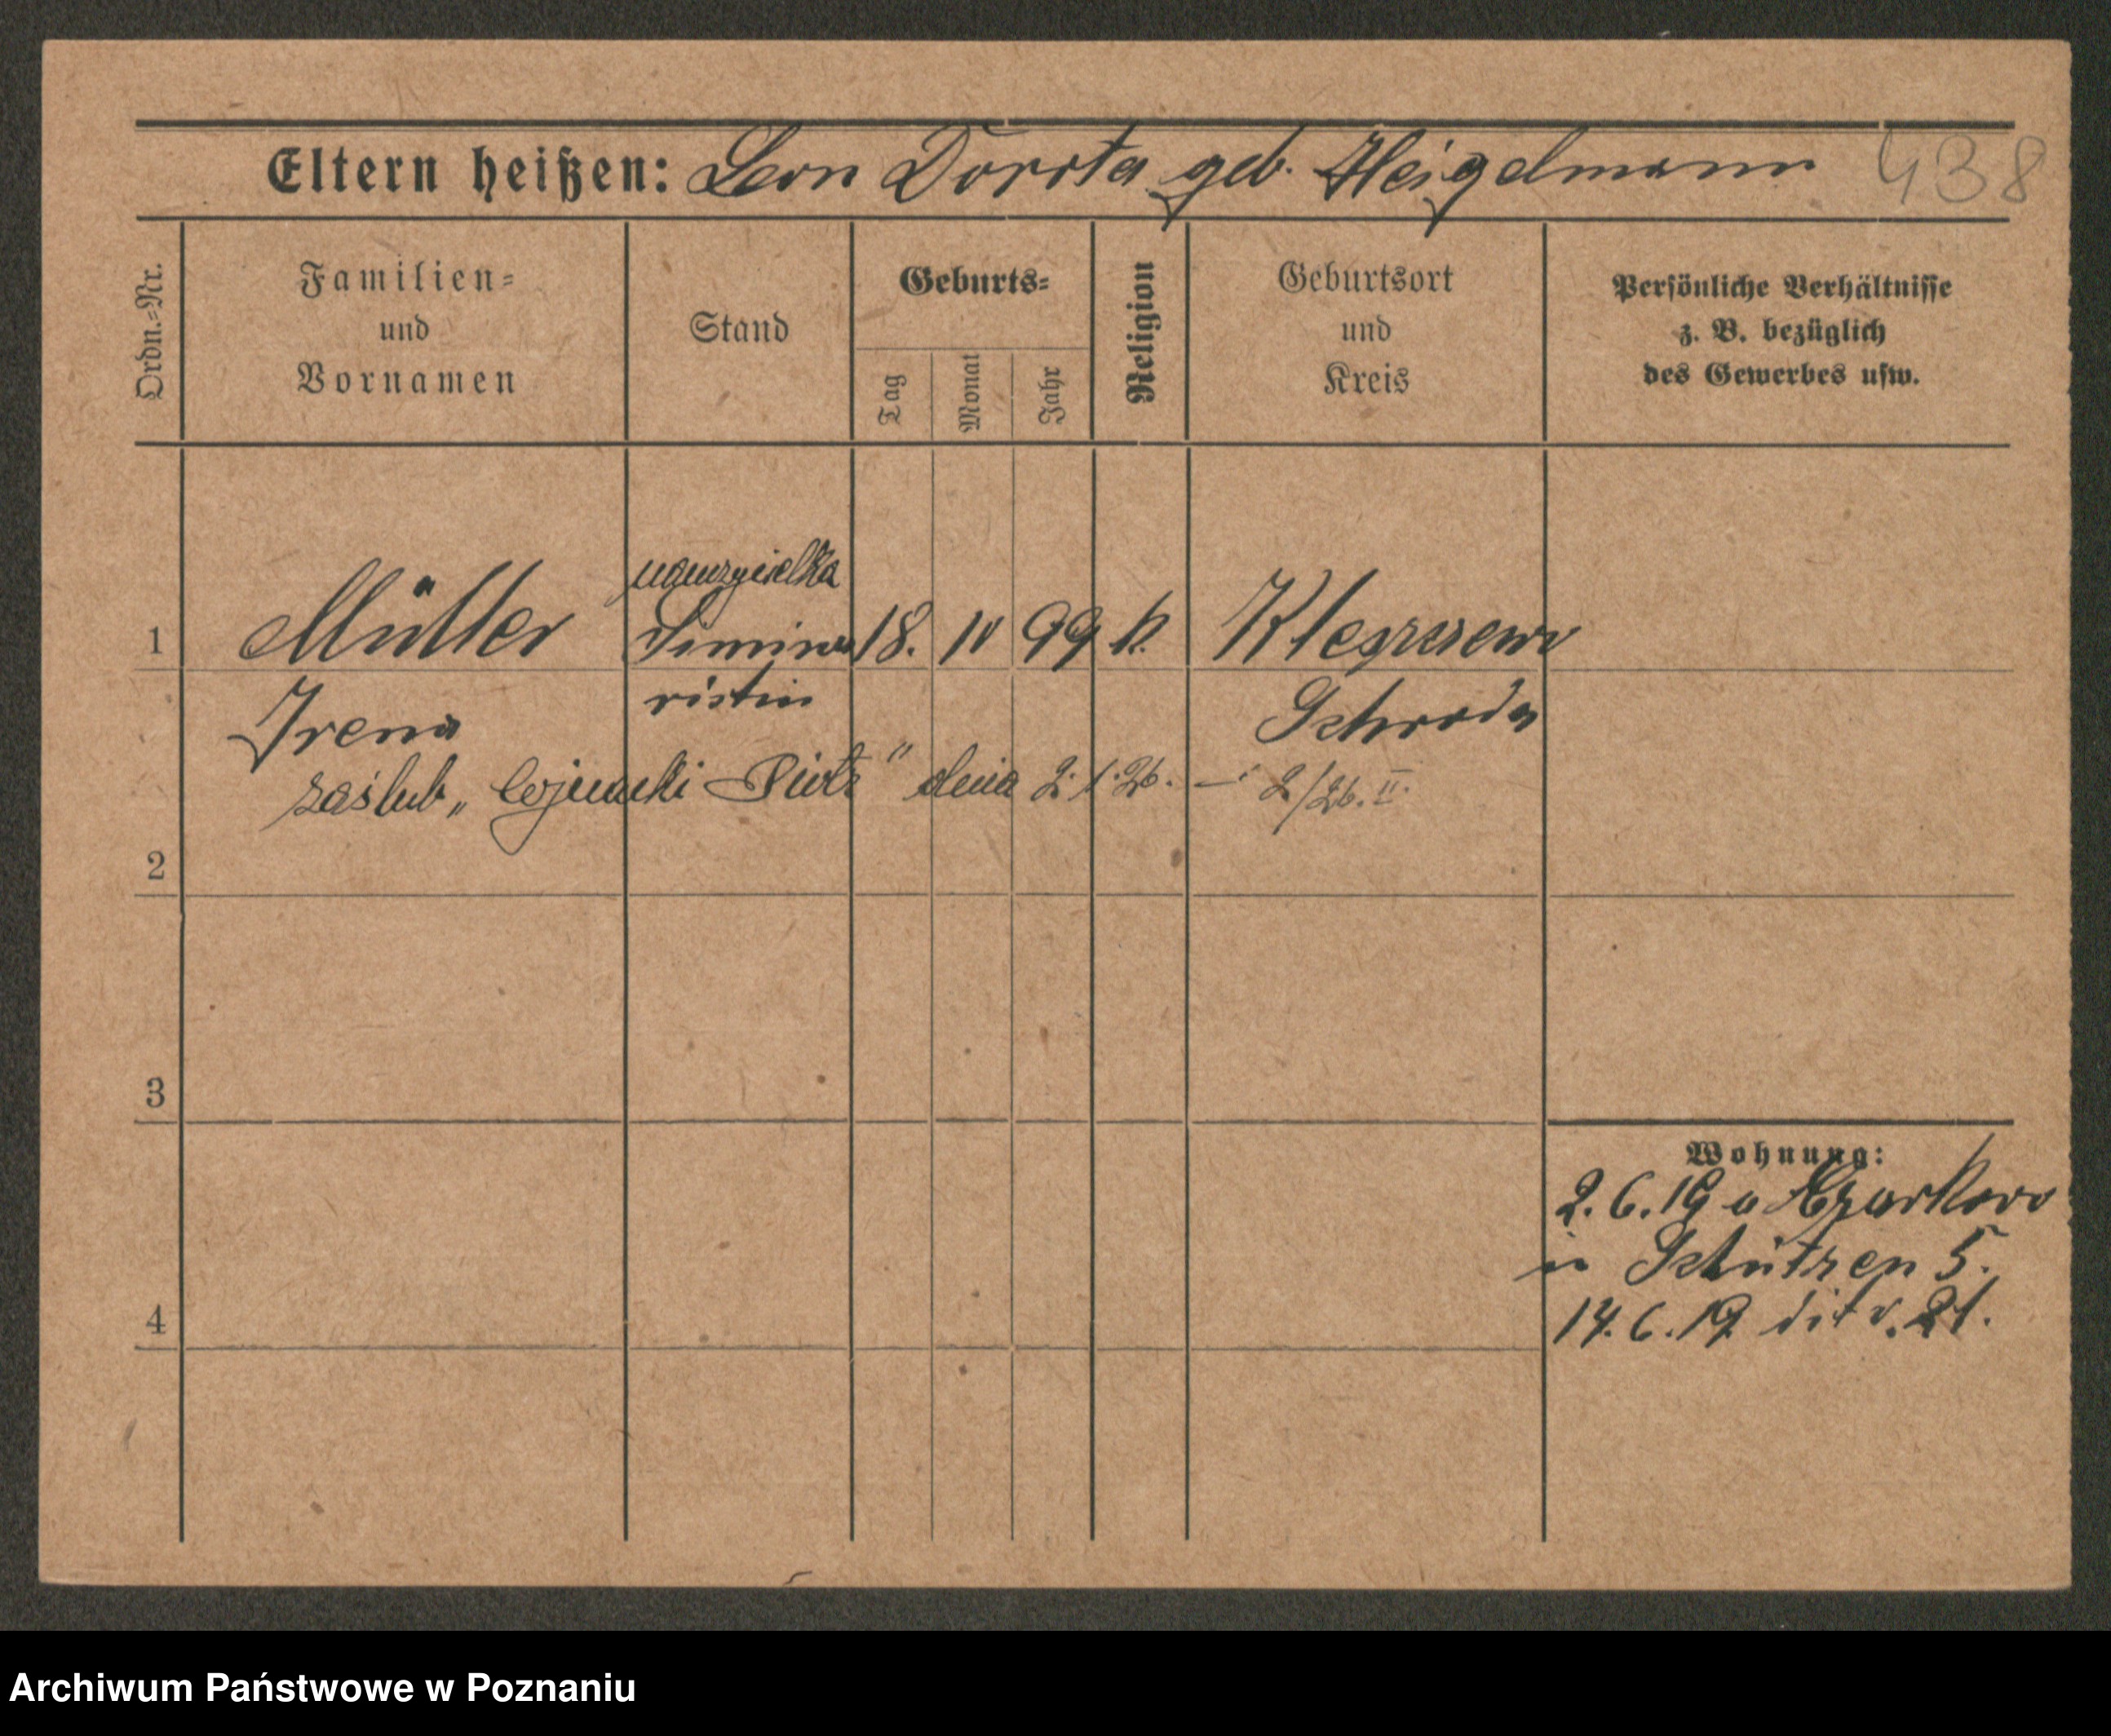 Eltern heißen: Leon Dorota geb. Heigelmann 438
Ordn.-Nr.
Familien-
und
Vornamen
Stand
Geburts-
Tag
Monat
Jahr
Religion
Geburtsort
und
Kreis
Persönliche Verhältnisse
z. B. bezüglich
des Gewerbes usw.
nauczycielka
1 Müller Semina 18. 10 99 k.
Irena ristin Schroda
zaślub „ Piotr " dnia 2.1.26. — 2/26. II.
2
3
Wohnung:
2.6.19 a Czarkow
in Schützen 5.
4 14.6.19 dito. 21.
Archiwum Państwowe w Poznaniu